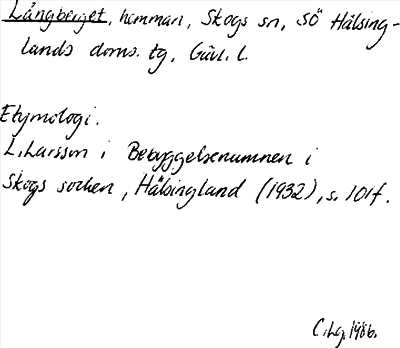 Långberget, hemman, Skogs sn, SÖ Hälsing-
lands doms. tg, Gävl. l.
Etymologi.
L. Larsson i Bebyggelsenamnen i
Skogs socken, Hälsingland (1932), s. 101f.
C. Lg. 1986.